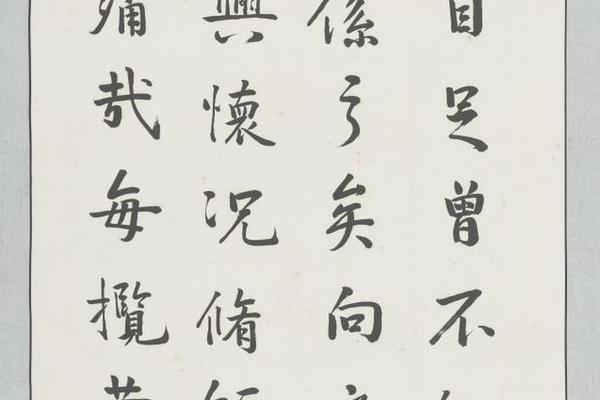 自足曾不
係之矣向
興懷况脩
痛哉每攬